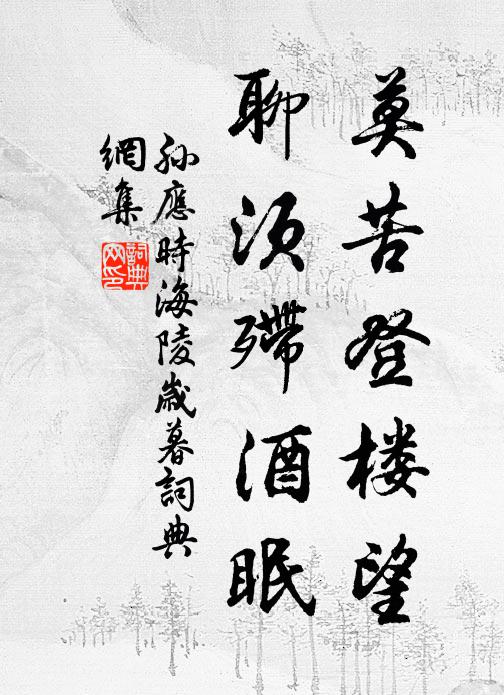 莫苦登楼望
聊须殢酒眠
孙應時海陵歲暮詞典
網集
詞典
网印